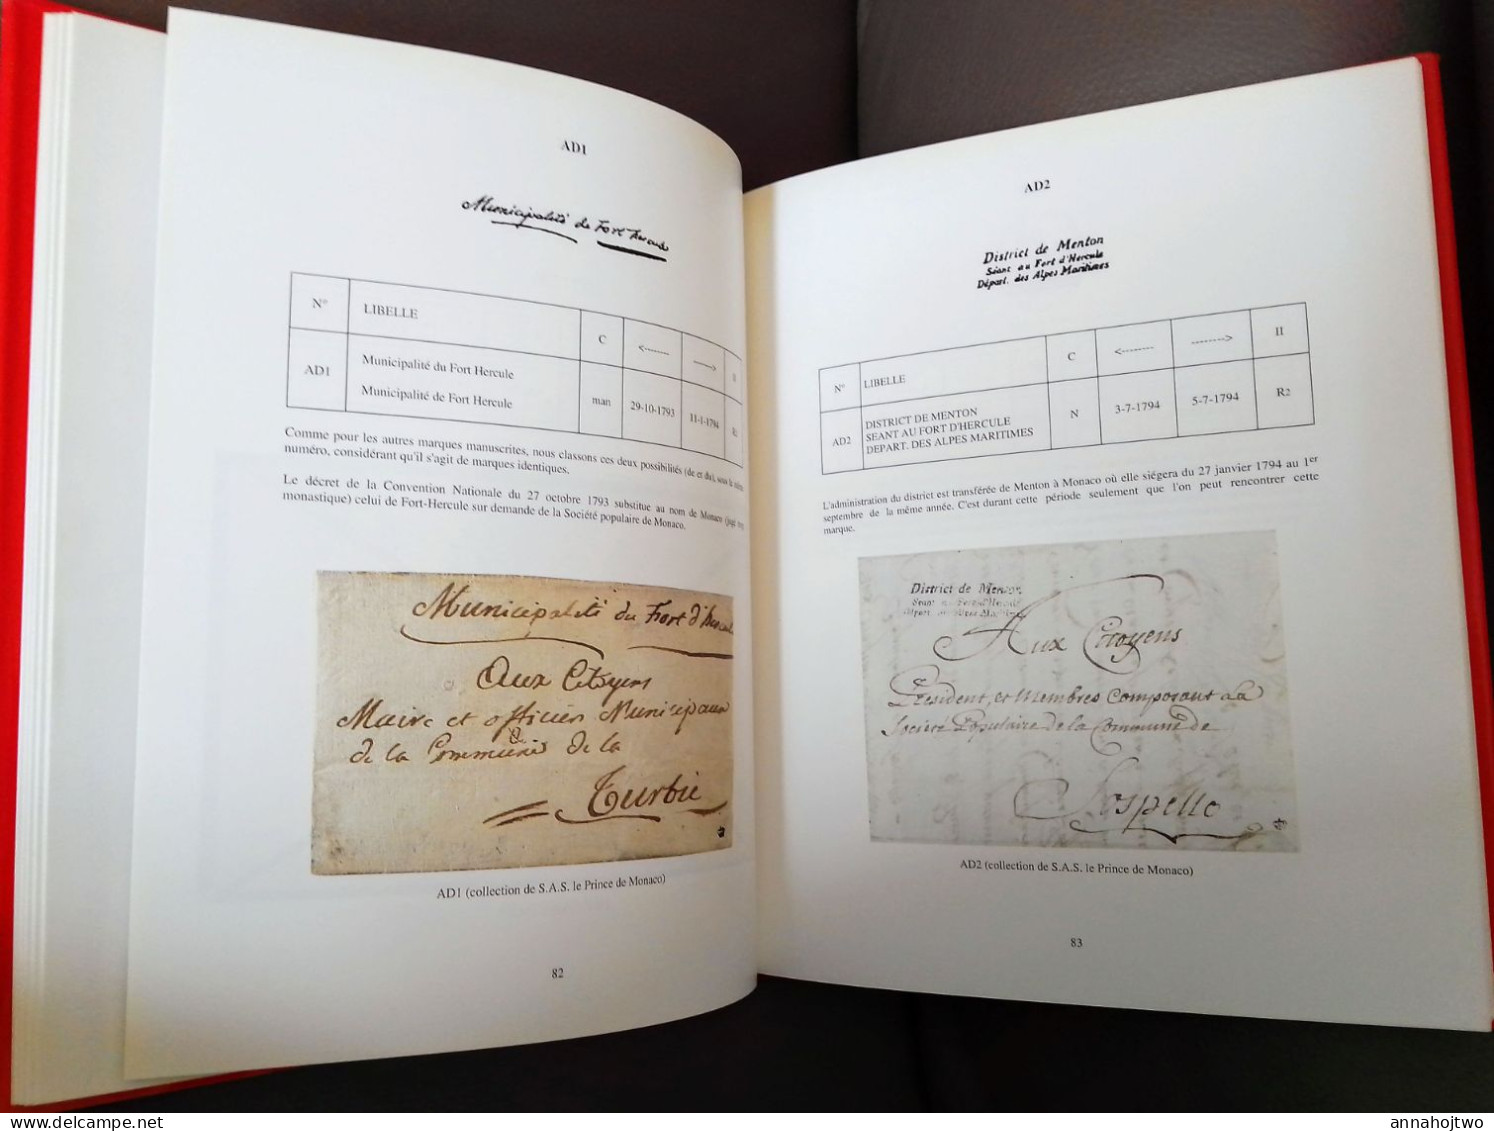 AD1
Municipalité de Fort hercule
N° LIBELLE C <-------- --------> II
AD1 Municipalité du Fort Hercule
Municipalité de Fort Hercule man 29-10-1793 11-1-1794 R2
Comme pour les autres marques manuscrites, nous classons ces deux possibilités (de et du), sous le même
numéro, considérant qu'il s'agit de marques identiques.
Le décret de la Convention Nationale du 27 octobre 1793 substitue au nom de Monaco (jugé trop
monastique) celui de Fort-Hercule sur demande de la Société populaire de Monaco.
Municipalité du Fort d'hercule
Aux Citoyens
Maire et officiers Municipaux
de la Commune de la
Turbie
AD1 (collection de S.A.S. le Prince de Monaco)
82
AD2
District de Menton
Séant au Fort d'Hercule
Départ. des Alpes Maritimes
N° LIBELLE C <-------- --------> II
AD2 DISTRICT DE MENTON
SEANT AU FORT D'HERCULE
DEPART. DES ALPES MARITIMES N 3-7-1794 5-7-1794 R2
L'administration du district est transférée de Menton à Monaco où elle siégera du 27 janvier 1794 au 1er
septembre de la même année. C'est durant cette période seulement que l'on peut rencontrer cette
marque.
District de Menton
Séant au Fort d'Hercule
Départ. des Alpes Maritimes
Aux Citoyens
Président, et Membres Composant la
Société Populaire de la Commune de
Sospello
AD2 (collection de S.A.S. le Prince de Monaco)
83
annahojtwo